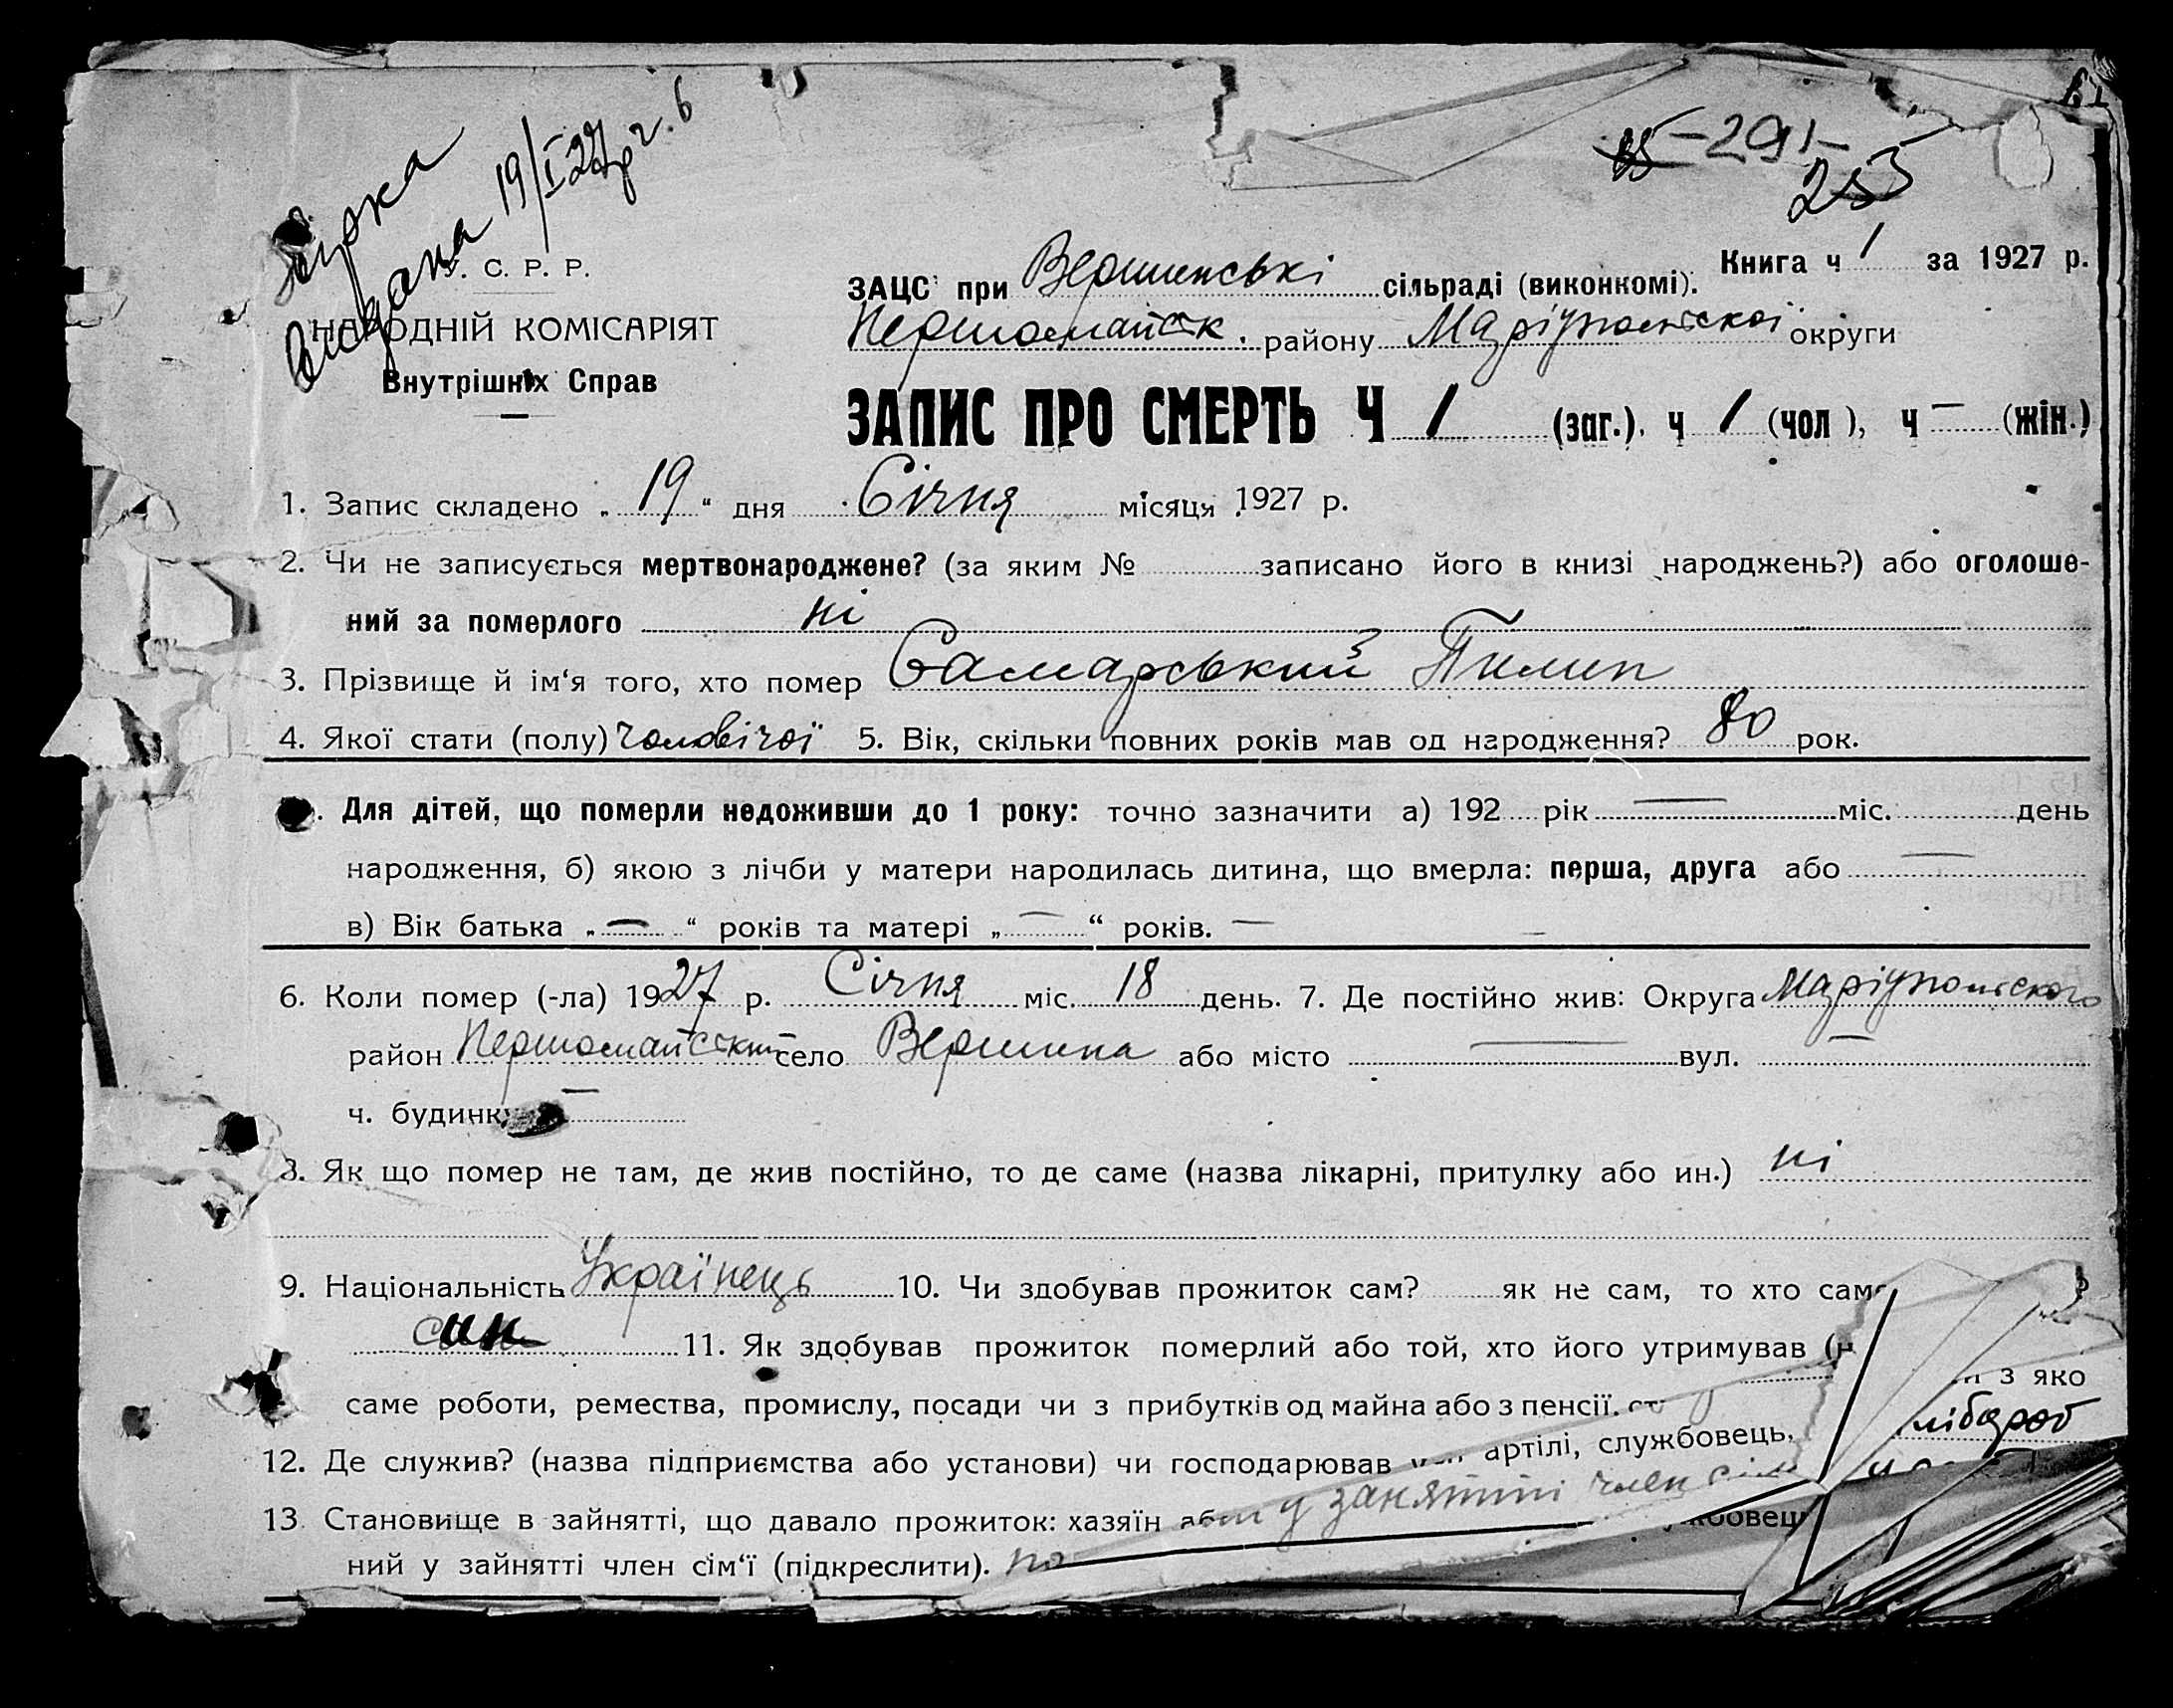 видана 19/I 27 р.
-291-
У. С. Р. Р.
НАРОДНІЙ КОМІСАРІЯТ
Внутрішніх Справ
Книга ч 1 за 1927 р.
ЗАЦС при Вершинські сільраді (виконкомі).
Першомайськ. району Маріупольскої округи
ЗАПИС ПРО СМЕРТЬ Ч 1 (заг.). ч 1 (чол), ч — (жін.)
1. Запис складено „19“ дня Січня місяця 1927 р.
2. Чи не записується мертвонароджене? (за яким № записано його в книзі народжень?) або оголоше-
ний за померлого ні
3. Прізвище й ім‘я того, хто помер Самарський Пилип
4. Якої стати (полу) чоловічої 5. Вік, скільки повних років мав од народження? 80 рок.
Для дітей, що померли недоживши до 1 року: точно зазначити а) 192 рік — міс. день
народження, б) якою з лічби у матери народилась дитина, що вмерла: перша, друга або —
в) Вік батька „—“ років та матері „—“ років. —
6. Коли помер (-ла) 1927 р. Січня міс. 18 день. 7. Де постійно жив: Округа Маріупольского
район Першомайський село Вершина або місто — вул. —
ч. будинку —
8. Як що помер не там, де жив постійно, то де саме (назва лікарні, притулку або ин.) ні
9. Національність Українець 10. Чи здобував прожиток сам? як не сам, то хто саме
син 11. Як здобував прожиток померлий або той, хто його утримував (
з яко
саме роботи, ремества, промислу, посади чи з прибутків од майна або з пенсії.
12. Де служив? (назва підприємства або установи) чи господарював артілі, службовець,
у занятті член
13 Становище в зайнятті, що давало прожиток: хазяїн
ний у зайнятті член сім‘ї (підкреслити).